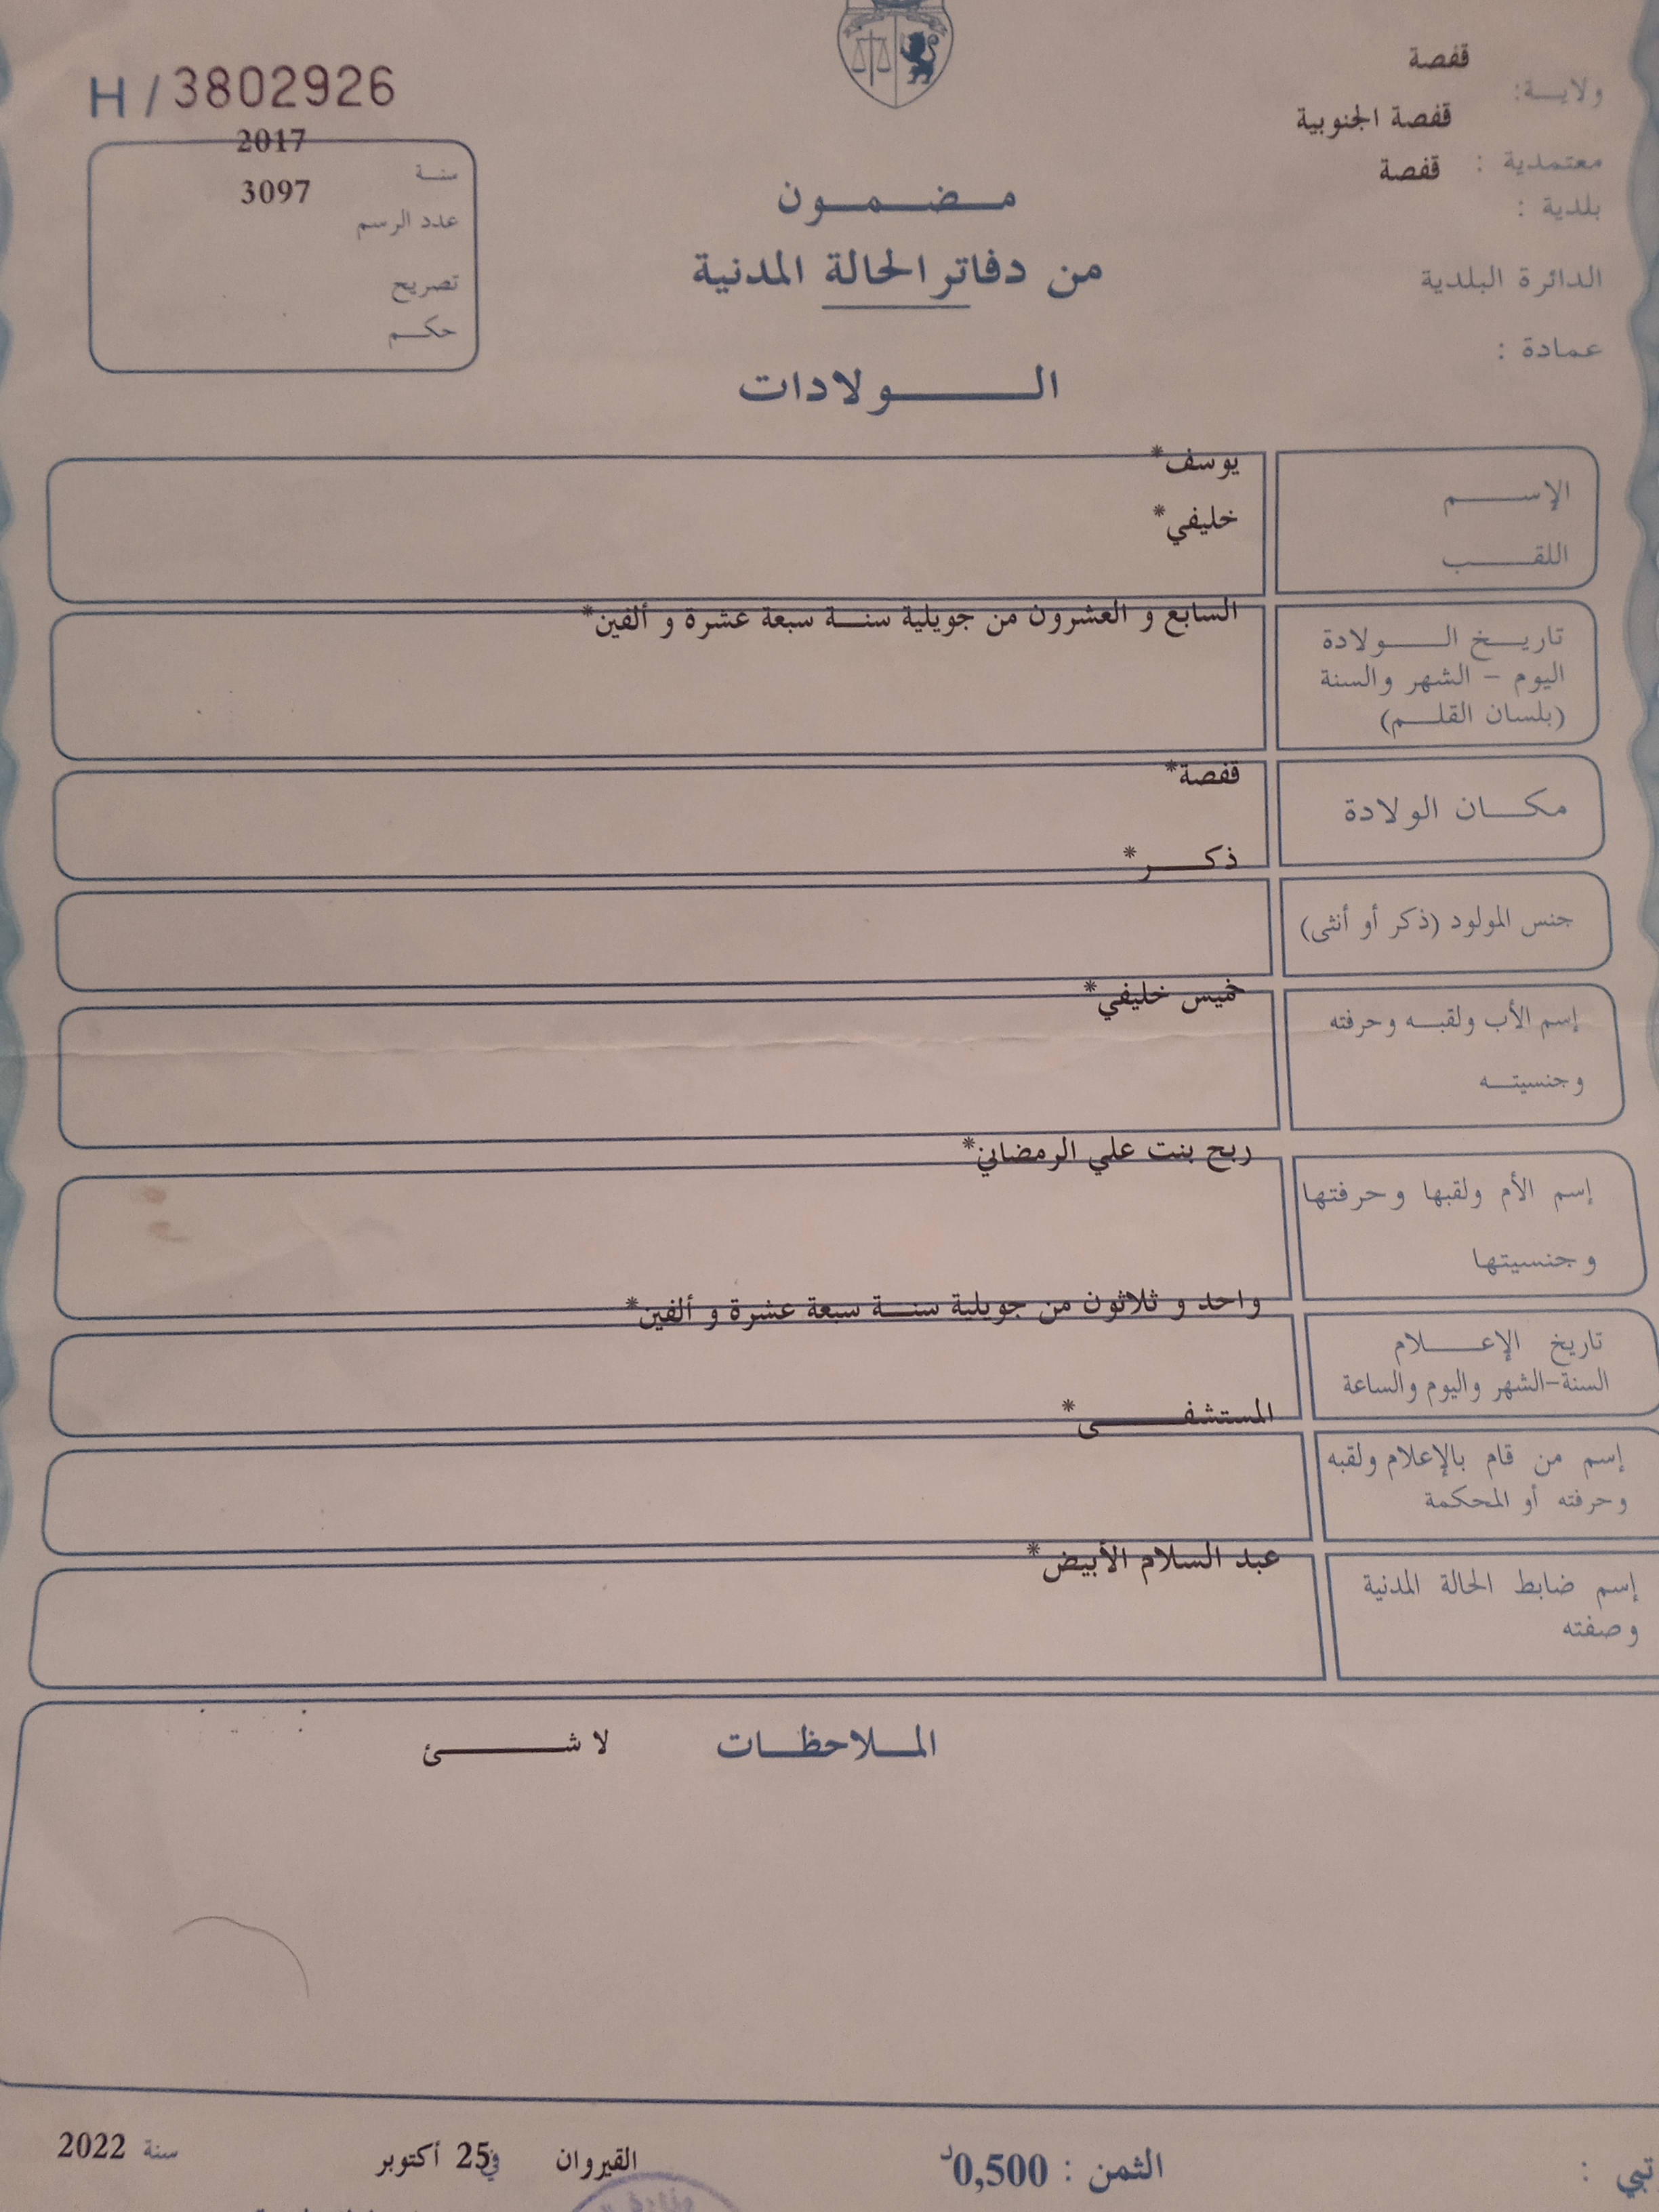 H / 3802926
قفصة
ولايـــة:
قفصة الجنوبية
معتمدية :
قفصة
بلدية :
الدائرة البلدية
عمادة :
2017
سنـــة
3097
عدد الرسم
تصريح
حكـــم
مـــضـــمـــون
من دفاتر الحالة المدنية
الـــــولادات
الإســـــم
يوسف*
اللقـــــب
خليفي*
تاريـــخ الـــــولادة
اليوم – الشهر والسنة
(بلسان القلـــم)
السابع و العشرون من جويلية سنـــة سبعة عشرة و ألفين*
مكـــان الولادة
قفصة*
جنس المولود (ذكر أو أنثى)
ذكـــــر*
إسم الأب ولقبـــه وحرفته
وجنسيتـــه
خميس خليفي*
إسم الأم ولقبها وحرفتها
وجنسيتها
ربح بنت علي الرمضاني*
تاريخ الإعـــــلام
السنة-الشهر واليوم والساعة
واحد و ثلاثون من جويلية سنـــة سبعة عشرة و ألفين*
إسم من قام بالإعلام ولقبه
وحرفته أو المحكمة
المستشفـــــى*
إسم ضابط الحالة المدنية
وصفته
عبد السلام الأبيض*
المـــلاحظـــات لا شـــــئ
الثمن : 0,500د القيروان في 25 أكتوبر سنة 2022